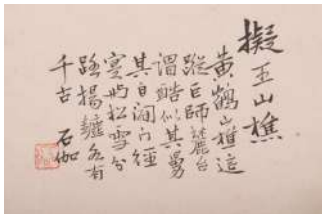 擬王山樵
黃鶴山樵
蹤巨師麓台
謂酷似其舅
其自門徑
寔與松雪分
路揚鑣各有
千古 石伽